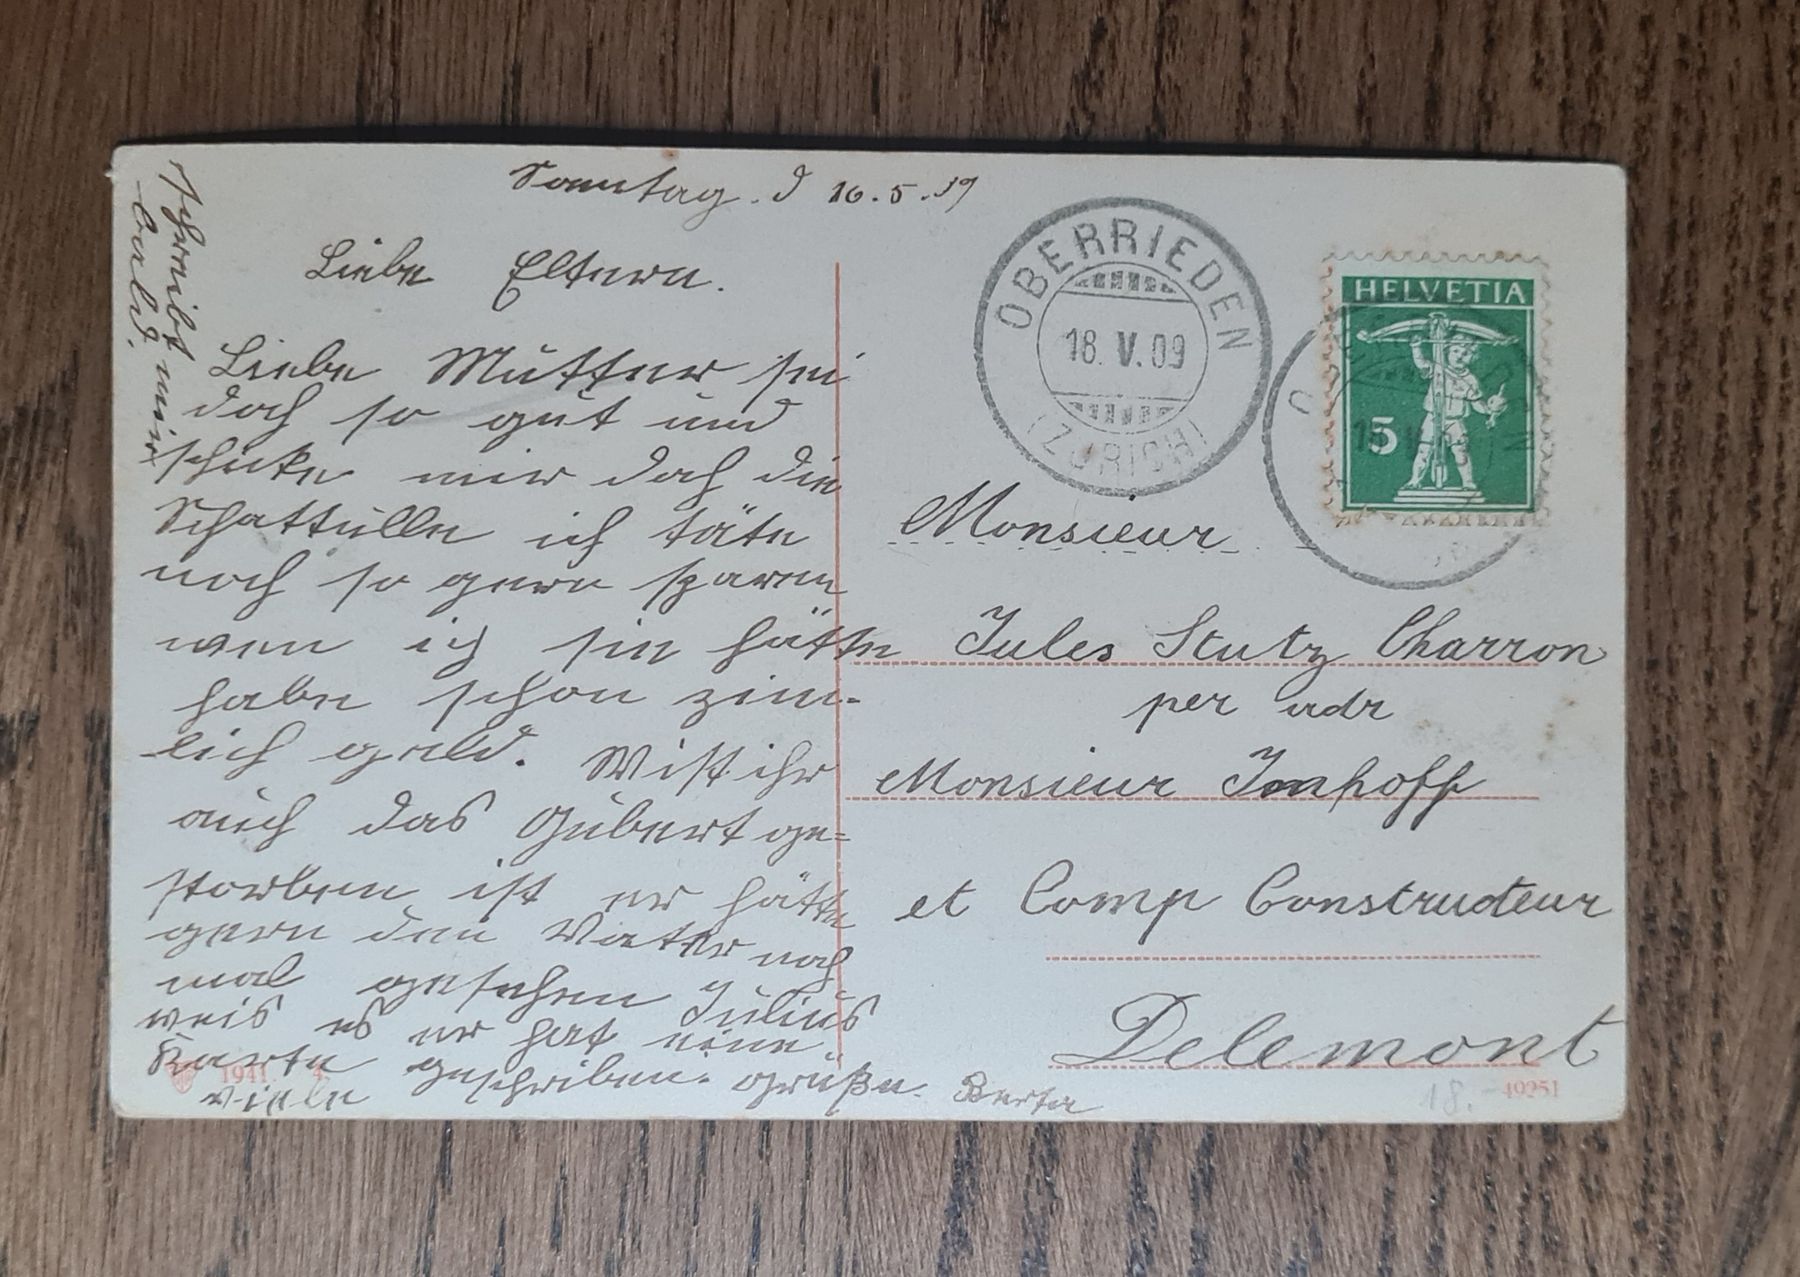 Sonntag. d 16.5.09
Liebe Eltern.
Liebe Mutter sei
doch so gut und
schicke mir doch die
Schattulle ich täte
noch so gern sparen
wen ich sie hätte
habe schon zim-
lich geld. Wist ihr
auch das Gubert ge=
storben ist er hätte
gern den Vatter noch
mal gesehen Julius
weis es er hat eine
Karte geschriben. grüße.
viele Berta
schreibt mir
bald.
OBERRIEDEN
18. V. 09
(ZÜRICH)
HELVETIA
5
Monsieur
Jules Stutz Charron
per adr
Monsieur Imhoff
et Comp Constructeur
Delemont
1941 4
18.- 49251